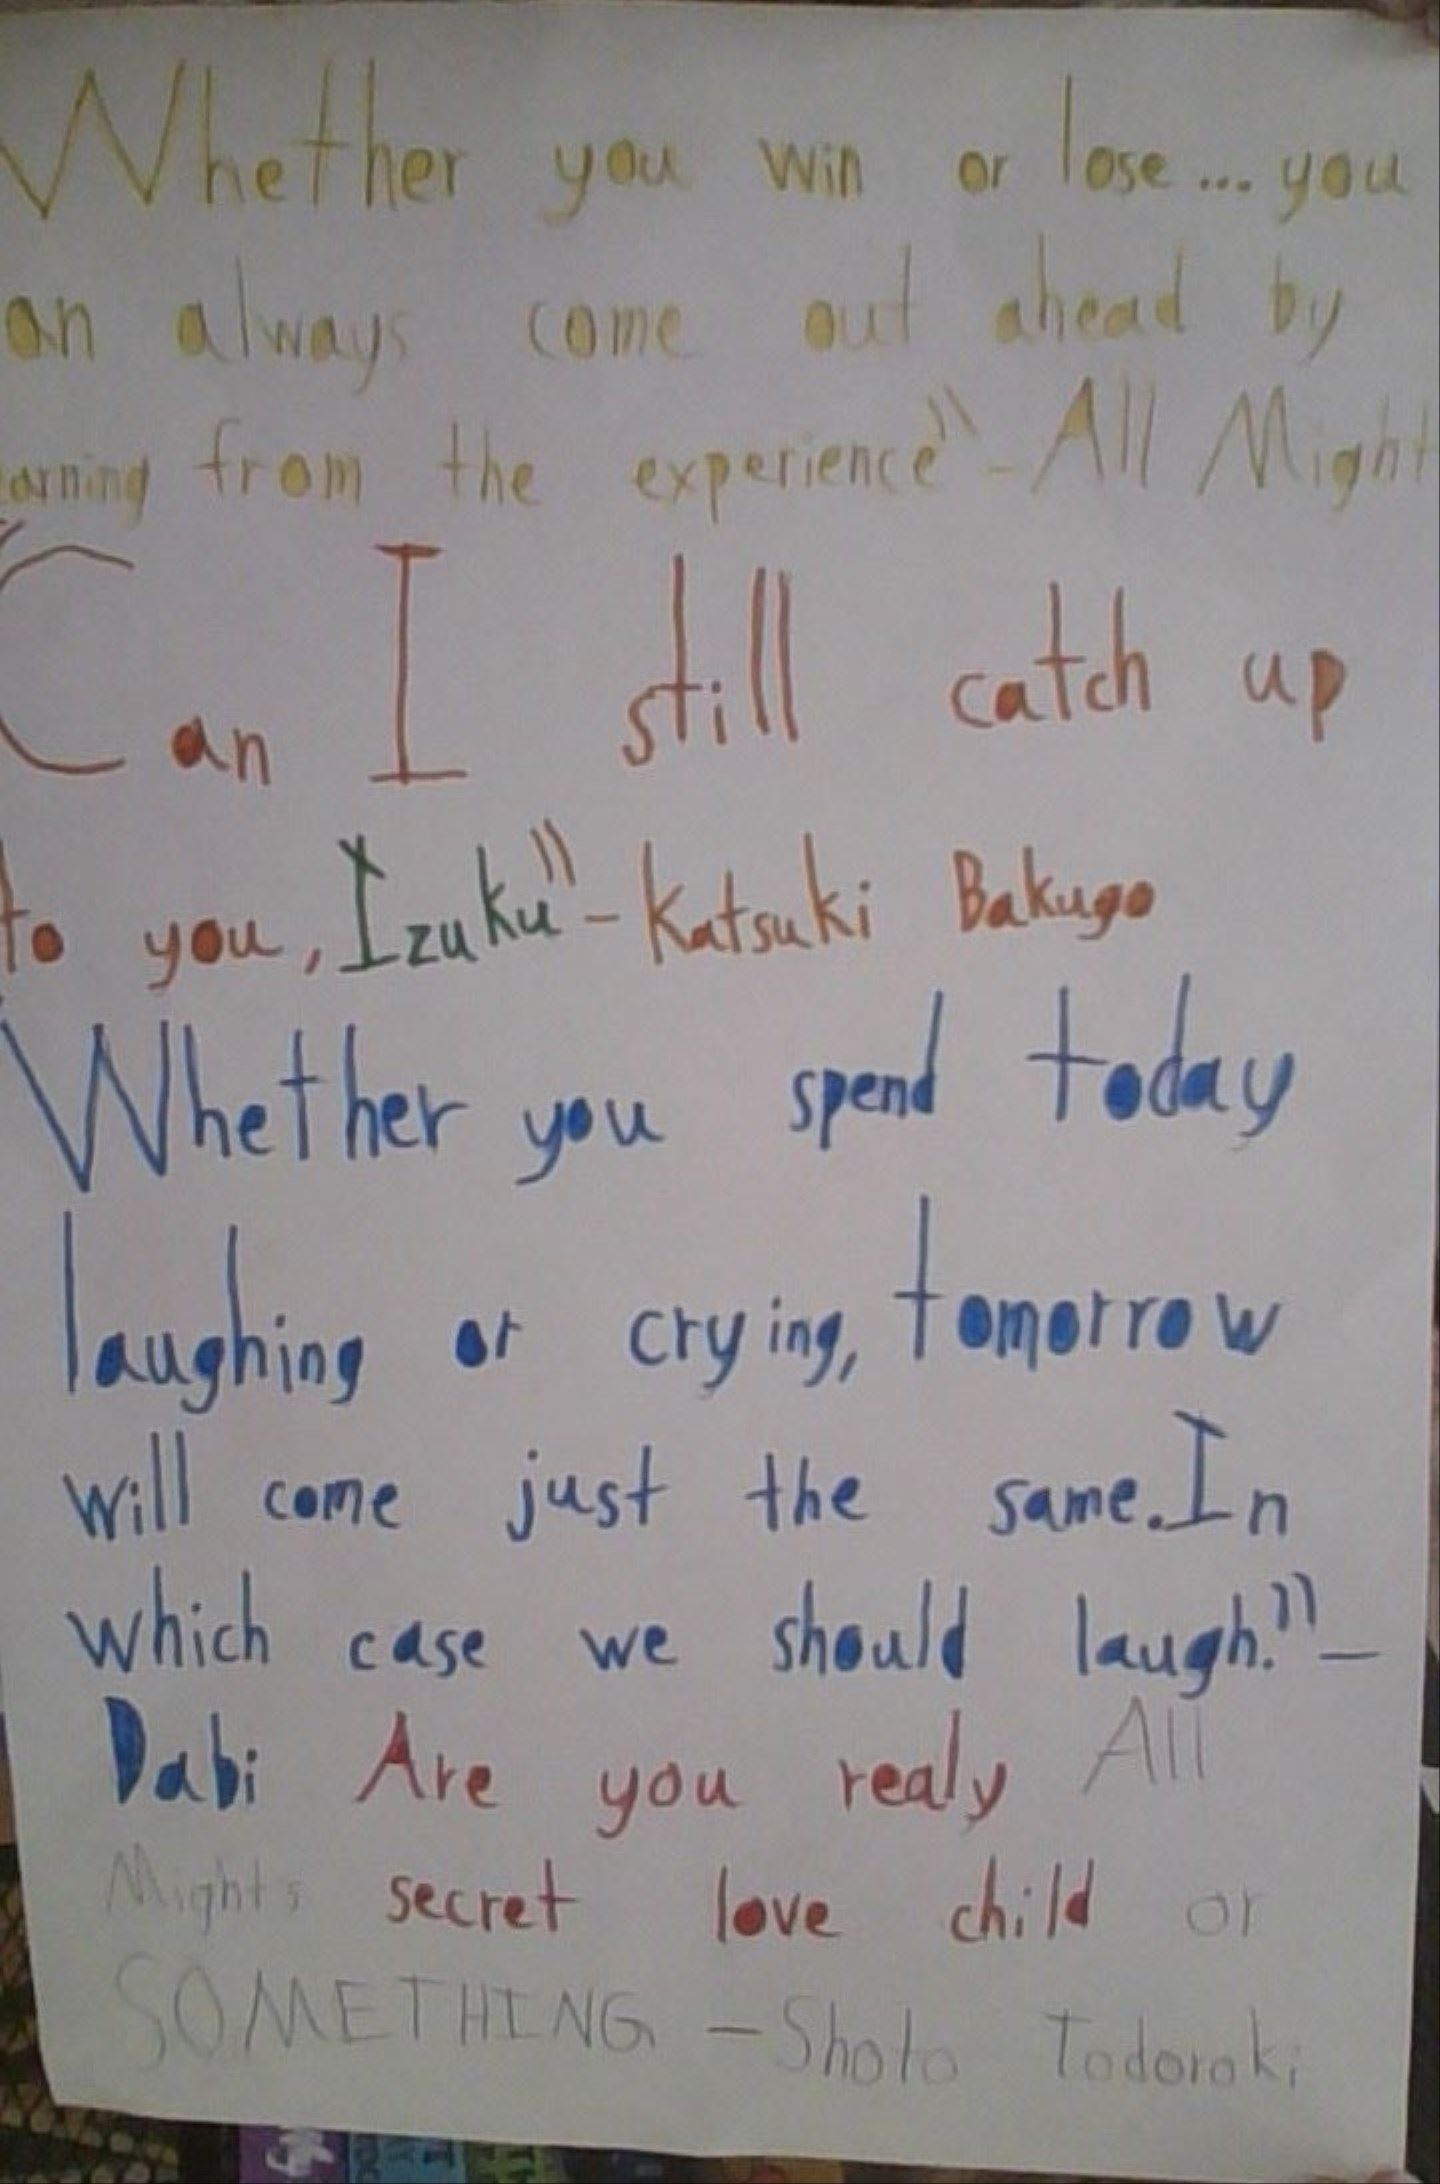 Whether you win or lose... you
an always come out ahead by
arning from the experience" - All Might
Can I still catch up
to you, Izuku" - Katsuki Bakugo
Whether you spend today
laughing or crying, tomorrow
will come just the same. In
which case we should laugh." -
Dabi Are you realy All
Mights secret love child or
SOMETHING - Shoto Todoroki